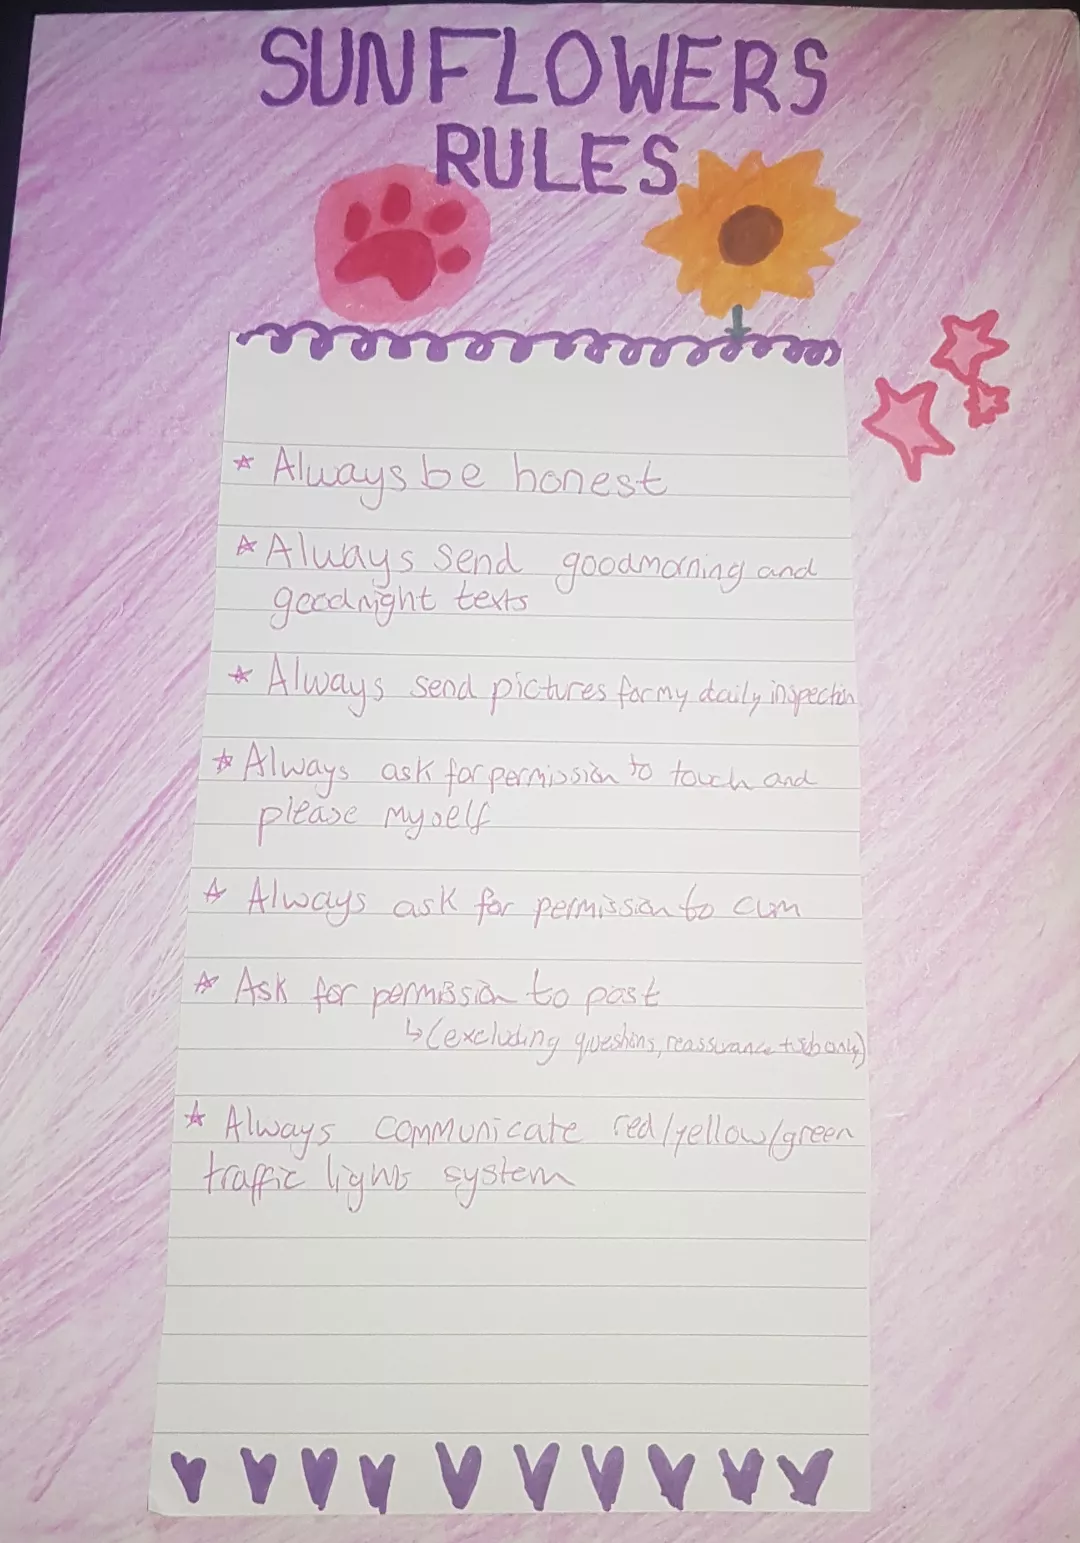 SUNFLOWERS
RULES
Always be honest
Always send goodmorning and
goodnight texts
Always send pictures for my daily inspection
Always ask for permission to touch and
please myself
Always ask for permission to cum
Ask for permission to post
↳(excluding questions, reassurance + sub only)
Always communicate red/yellow/green
traffic lights system